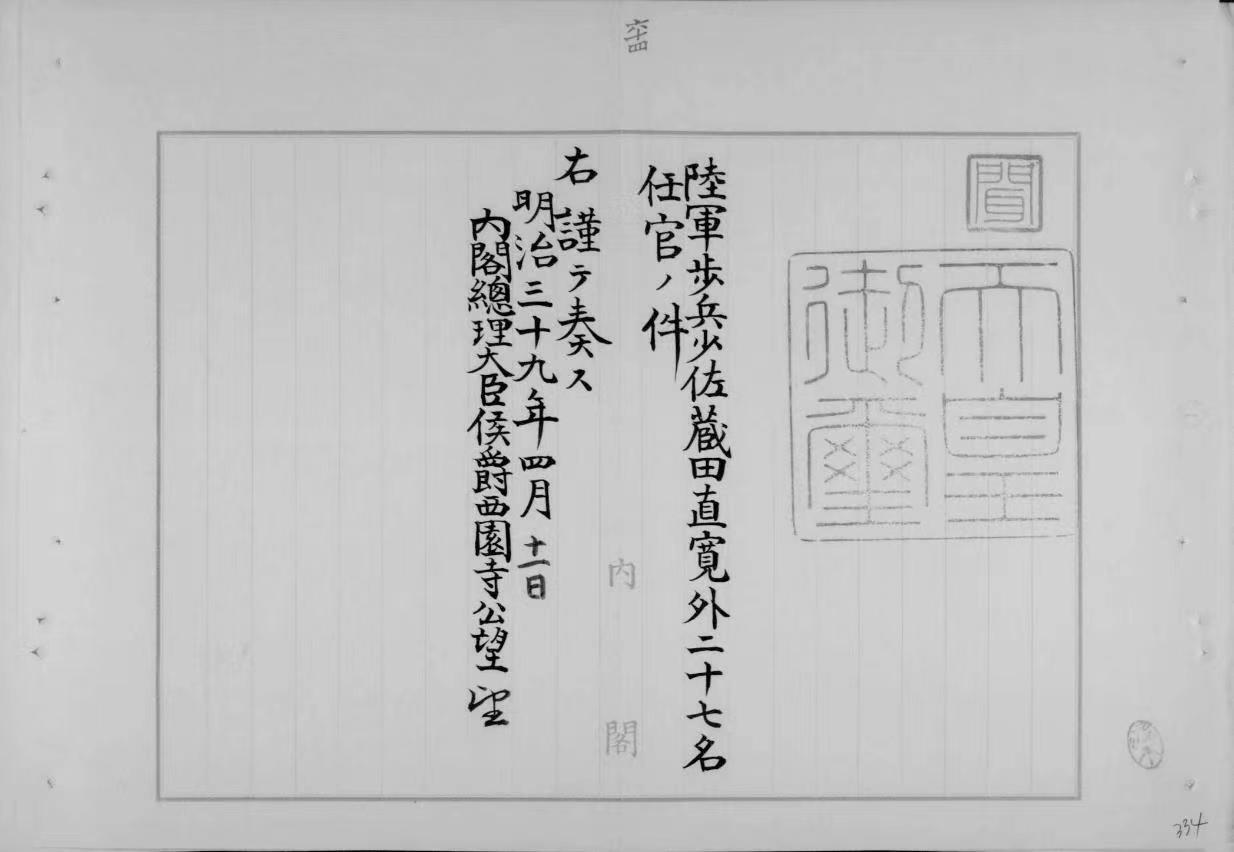 六十四
聞
天皇
御璽
陸軍歩兵少佐蔵田直寛外二十七名
任官ノ件
右謹テ奏ス
明治三十九年四月十一日
内閣總理大臣侯爵西園寺公望
内閣
334